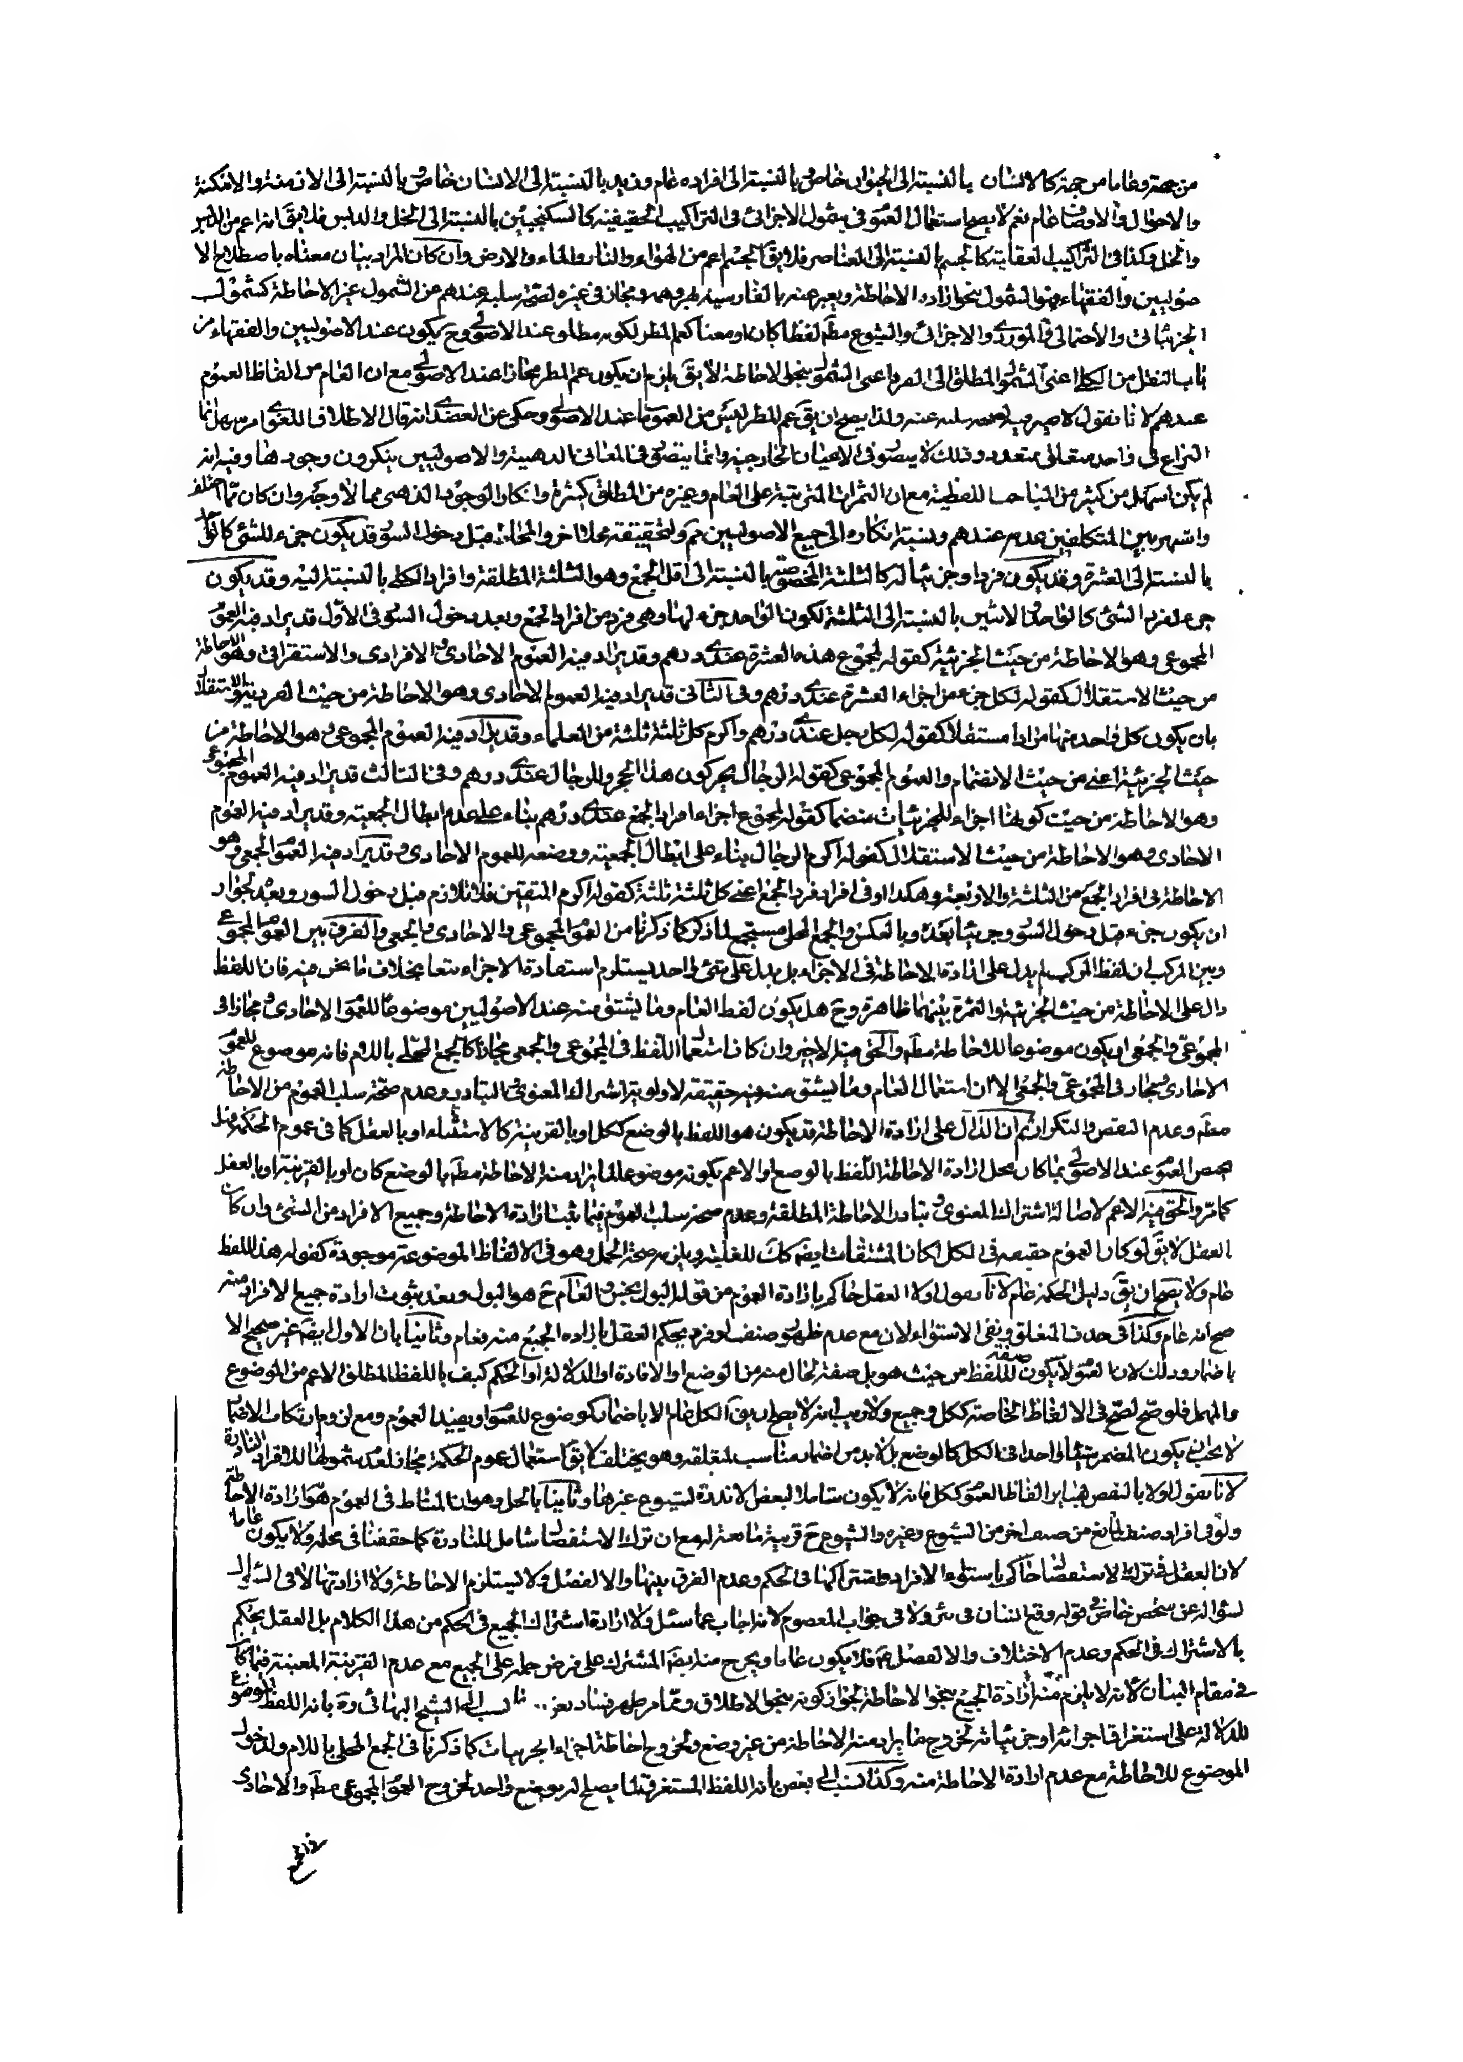 من جهة وعاما من جهة كالانسان بالنسبة الى الحيوان خاص بالنسبة الى افراده عام وزيد بالنسبة الى الانسان خاص بالنسبة الى الازمنة والامكنة
والاحوال والاوضاع عام نعم لا يصح استعمال العموم في شمول الاجزائى فى التراكيب الحقيقية كالسكنجبين بالنسبة الى الخل والدبس فلا يقال انه اعم من الدبس
والخل وكذا فى التراكيب العقلية كالجسم بالنسبة الى العناصر فلا يق الجسم اعم من الهواء والنار والماء والارض وان كان المراد بيان معناه باصطلاح الا
صوليين والفقهاء فهو الشمول بنحو ارادة الاحاطة ويعبر عنه بالفارسية بهر وهمه ومجاز فى غيره لصحة سلبه عندهم من الشمول غير الاحاطة كشمول
الجزئياتى والاحتمالى فى الموردى والاجزائى والشيوع مطلقا لفظا كان او معنا كعم المطر لكونه مطلق عند الاصولى وح يكون عند الاصوليين والفقهاء من
باب النقل من الكلى اعنى الشمول المطلق الى الفرد اعنى الشمول بنحو الاحاطة لا يق يلزم ان يكون عم المطر مجازا عند الاصولى مع ان العام من الفاظ العموم
عندهم لانا نقول لا ضير فيه سلبه عنه ولذا يصح ان يق عم المطر ليس من العموم عند الاصولى وحكى عن العضدى انه قال الاطلاق اللغوى امره سهل انما
النزاع فى واحد متعلق بمتعدد وذلك لا يتصور فى الاعيان الخارجية وانما يتصور فى المعانى الذهنية والاصوليين ينكرون وجودها وفيه انه
لم يكن اسهل من كثير من المباحث اللفظية مع ان الثمرات المترتبة على العام وغيره من المطلق كثيرة وانكار الوجود الذهنى مما لا وجه وان كان مما اختلف
واشتهر بين المتكلفين عدمه عندهم ونسبة انكاره الى جميع الاصوليين كم ولتحقيقه محل اخر والمحاط قبل دخول السور قد يكون جزء للشئ كالواحد
بالنسبة الى العشرة وقد يكون فردا وجزئيا له كالثلثة المخصوصة بالنسبة الى اقل الجمع وهو الثلثة المطلقة وافراد الكلى بالنسبة اليه وقد يكون
جزء لفرد الشئ كالواحد والاثنين بالنسبة الى الثلثة لكون الواحد جزء لها وهى فرد من افراد الجمع وبعد دخول السور فى الاول قد يراد فيه العموم
المجموعى وهو الاحاطة من حيث الجزئية كقوله مجموع هذه العشرة عندى درهم وقد يراد منه العموم الاحادى والافرادى والاستقرائى وهو الاحاطة
من حيث الاستقلال كقوله لكل جزء من اجزاء العشرة عندى درهم وفى الثانى قد يراد فيه العموم الاحادى وهو الاحاطة من حيث الفردية والاستقلال
بان يكون كل واحد منها مرادا مستقلا كقوله لكل رجل عندى درهم واكرم كل ثلثة ثلثة من العلماء وقد يراد فيه العموم المجموعى وهو الاحاطة من
حيث الجزئية اعنى من حيث الانضمام والعموم المجموعى كقوله الرجال يحركون هذا الحجر وللرجال عندى درهم وفى الثالث قد يراد فيه العموم المجموعى
وهو الاحاطة من حيث كونها اجزاء للجزئيات منضما كقوله لمجموع اجزاء افراد الجمع عندى درهم بناء على عدم ابطال الجمعية وقد يراد فيه العموم
الاحادى وهو الاحاطة من حيث الاستقلال كقوله اكرم الرجال بناء على ابطال الجمعية ووضعه للعموم الاحادى وقد يراد فيه العموم الجمعى وهو
الاحاطة فى افراد الجمع من الثلثة والاربعة وهكذا او فى افراد فرد الجمع اعنى كل ثلثة ثلثة كقوله اكرم المتقين فلا تلازم قبل دخول السور وبعد لجواز
ان يكون جزء قبل دخول السور وجزئيا بعده وبالعكس والجمع المحلى مستجمع لما ذكر كما ذكرنا من العموم المجموعى والاحادى والجمعى والفرق بين العموم المجموعى
وبين المركب ان لفظ المركب لم يدل على ارادة الاحاطة فى الاجزاء بل يدل على شئ واحد يستلزم استفادة الاجزاء تبعا بخلاف ما نحن فيه فان اللفظ
دال على الاحاطة من حيث الجزئية والثمرة بينهما ظاهرة وح هل يكون لفظ العام وما يشتق منه عند الاصوليين موضوعا للعموم الاحادى ومجازا فى
المجموعى والجمعى او يكون موضوعا للاحاطة مطلقا والحق فيه الاخير وان كان استعمال اللفظ فى المجموعى والجمعى مجازا كالجمع المحلى باللام فانه موضوع للعموم
الاحادى ومجاز فى المجموعى والجمعى الا ان استعمال العام وما يشتق منه فيه حقيقة لاولوية اشتراك المعنوى والتبادر وعدم صحة سلب العموم من الاحاطة
مطلقا وعدم النقص والتكرار ثم ان الدال على ارادة الاحاطة قد يكون هو اللفظ بالوضع ككل او بالقرينة كالاستثناء او بالعقل كما فى عموم الحكمة وهل
يختص العموم عند الاصولى بما كان محل ارادة الاحاطة اللفظ بالوضع او الاعم بكونه موضوعا لما يراد منه الاحاطة مطلقا بالوضع كان او بالقرينة او بالعقل
كما مر والحق فيه الاعم لاصالة اشتراك المعنوى وتبادر الاحاطة المطلقة وعدم صحة سلب العموم فيما ثبت ارادة الاحاطة وجميع الافراد من الشئ وان كان
العقل لا يق لو كان العموم حقيقة فى الكل لكان المشتقات ايضا كك للغلبة ويلزمه صحة الحمل وهو فى الالفاظ الموضوعة موجودة كقوله هذا اللفظ
عام ولا يصح ان يق دليل الحكمة عام لانا نقول اولا العقل حاكم بارادة العموم من قوله البول نجس والعام ح هو البول وبعد ثبوت ارادة جميع الافراد منه
صح انه عام وكذا فى حذف المتعلق ونفى الاستواء لان مع عدم ظهور صنف او فرد يحكم العقل بارادة الجميع منه فعام وثانيا بان الاول ايضا غير صحيح الا
باضمار وذلك لان العموم لا يكون صفة للفظ من حيث هو بل صفة لحال منه من الوضع او الافادة او الدلالة او الحكم كيف باللفظ المطلق الاعم من الموضوع
والمهمل فلو صح لصح فى الالفاظ الخاصة ككل وجميع ولا ريب انه لا يصح ان يق الكل عام الا باضمار كموضوع للعموم او يفيد العموم ومع لزوم ارتكاب الاضمار
لا يجب ان يكون المضمر شيئا واحدا فى الكل كالوضع بل لا بد من اضمار مناسب لمتعلقه وهو يختلف لا يق استعمال عموم الحكمة مجاز لعدم شمولها للافراد النادرة
لانا نقول اولا بالنقض بسائر الفاظ العموم ككل فانه لا يكون شاملا لبعض الاندرة لشيوع غيرها وثانيا بالحل وهو ان المناط فى العموم هو ارادة الاحاطة
ولو فى افراد صنف لمانع من صنف اخر من الشيوع وغيره والشيوع ح قرينة مانعة له مع ان ترك الاستفصال شامل للنادرة كما حققنا فى محله ولا يكون عاما
لان العقل فى ترك الاستفصال حاكم باستواء الافراد طقتر اكها فى الحكم وعدم الفرق بينها والا لفصل ولا يستلزم الاحاطة ولا ارادتها لا فى السؤال
لسؤاله عن شخص خاص فى قوله وقع انسان فى بئر ولا فى جواب المعصوم لانه اجاب عما سئل ولا ارادة اشتراك الجميع فى الحكم من هذا الكلام بل العقل يحكم
بالاشتراك فى الحكم وعدم الاختلاف والا لفصل فلا يكون عاما ويخرج منه ايضا المشترك على فرض حمله على الجميع مع عدم القرينة المعينة فيما كان
فى مقام البيان لانه لا يلزم منه ارادة الجميع بنحو الاحاطة لجواز كونه بنحو الاطلاق ومما مر ظهر فساد نسب الى الشيخ البهائى ره بانه اللفظ الموضوع
للدلالة على استغراق اجزائه او جزئياته لخروج ما يراد منه الاحاطة من غير وضع ولخروج احاطة اجزاء الجزئيات كما ذكرنا فى الجمع المحلى باللام ولدخول
الموضوع للاحاطة مع عدم ارادة الاحاطة منه وكذا نسب الى بعض بانه اللفظ المستغرق لما يصلح له بوضع واحد لخروج العموم المجموعى مطلقا والاحادى